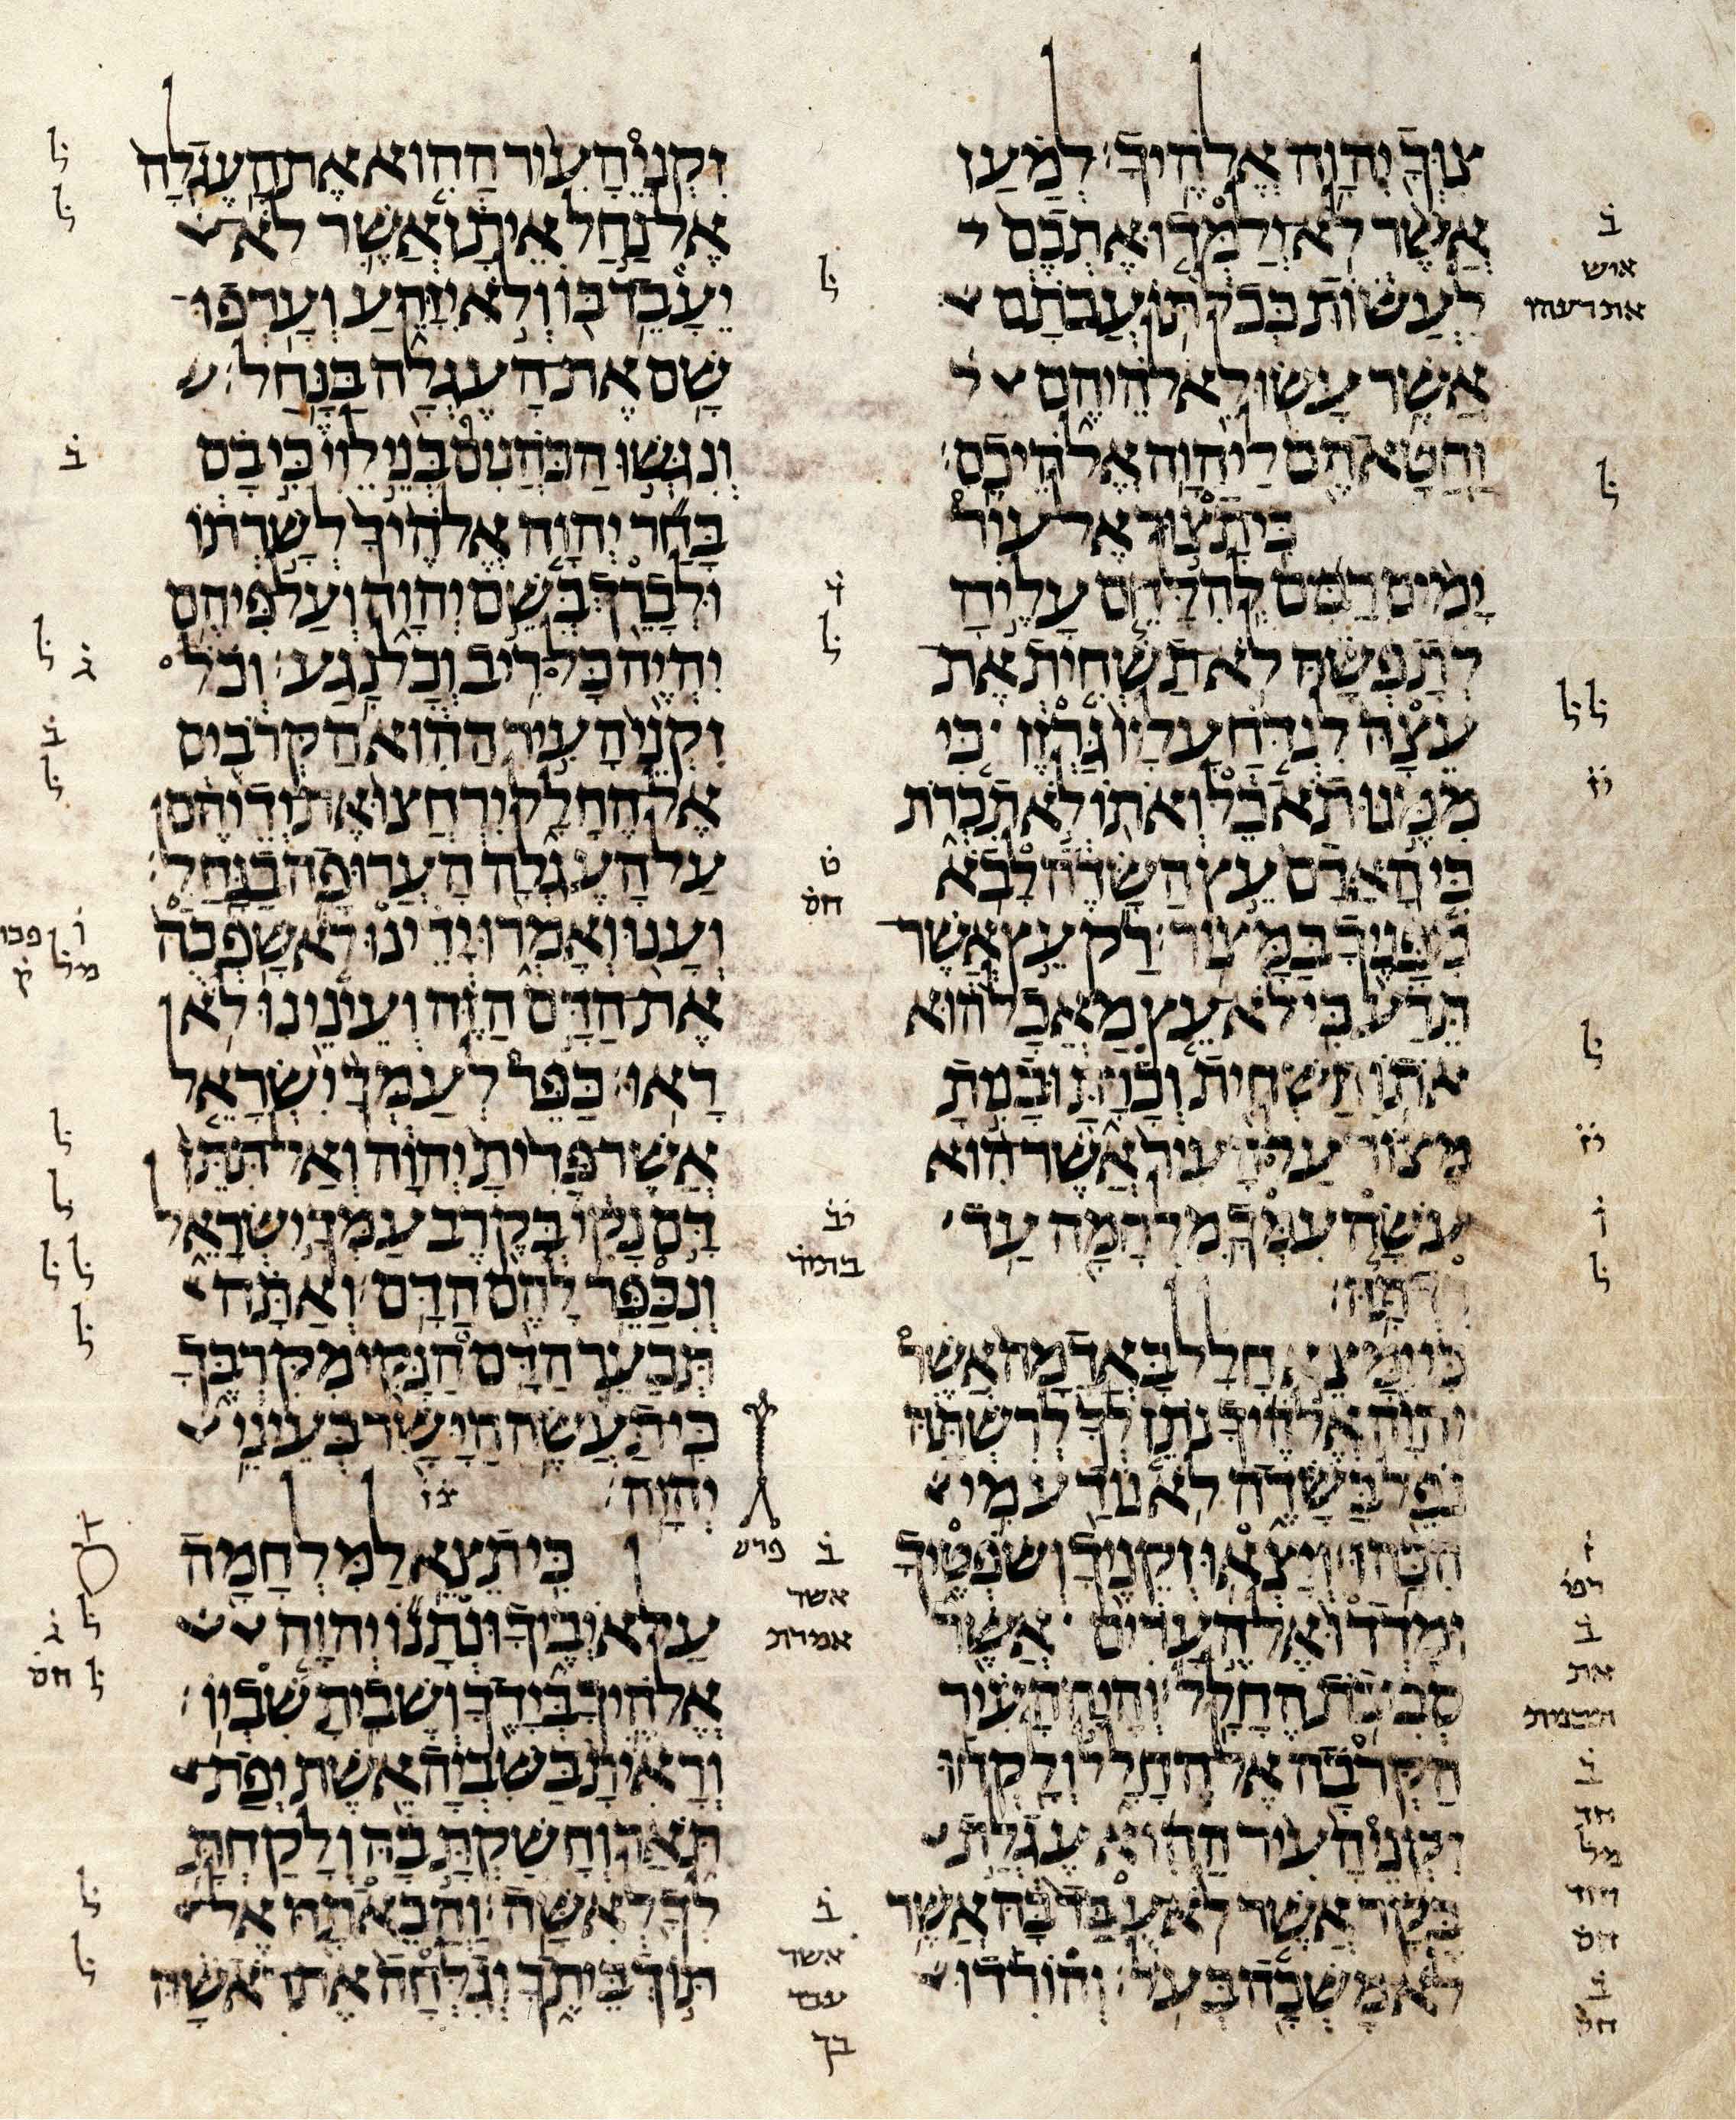 צוך יהוה אלהיך למען
אשר לא ילמדו אתכם
לעשות ככל תועבתם
אשר עשו לאלהיהם
וחטאתם ליהוה אלהיכם
כי תצור אל עיר
ימים רבים להלחם עליה
לתפשה לא תשחית את
עצה לנדח עליו גרזן כי
ממנו תאכל ואתו לא תכרת
כי האדם עץ השדה לבא
מפניך במצור רק עץ אשר
תדע כי לא עץ מאכל הוא
אתו תשחית וכרת ובנית
מצור על העיר אשר הוא
עשה עמך מלחמה עד
רדתה
כי ימצא חלל באדמה אשר
יהוה אלהיך נתן לך לרשתה
נפל בשדה לא נודע מי
הכהו ויצאו זקניך ושפטיך
ומדדו אל הערים אשר
סביבת החלל והיה העיר
הקרבה אל החלל ולקחו
זקני העיר ההוא עגלת
בקר אשר לא עבד בה אשר
לא משכה בעל והורדו
זקני העיר ההוא את העגלה
אל נחל איתן אשר לא
יעבד בו ולא יזרע וערפו
שם את העגלה בנחל
ונגשו הכהנים בני לוי כי בם
בחר יהוה אלהיך לשרתו
ולברך בשם יהוה ועל פיהם
יהיה כל ריב וכל נגע וכל
זקני העיר ההוא הקרבים
אל החלל ירחצו את ידיהם
על העגלה הערופה בנחל
וענו ואמרו ידינו לא שפכה
את הדם הזה ועינינו לא
ראו כפר לעמך ישראל
אשר פדית יהוה ואל תתן
דם נקי בקרב עמך ישראל
ונכפר להם הדם ואתה
תבער הדם הנקי מקרבך
כי תעשה הישר בעיני
יהוה
כי תצא למלחמה
על איביך ונתנו יהוה
אלהיך בידך ושבית שביו
וראית בשביה אשת יפת
תאר וחשקת בה ולקחת
לך לאשה והבאתה אל
תוך ביתך וגלחה את ראשה